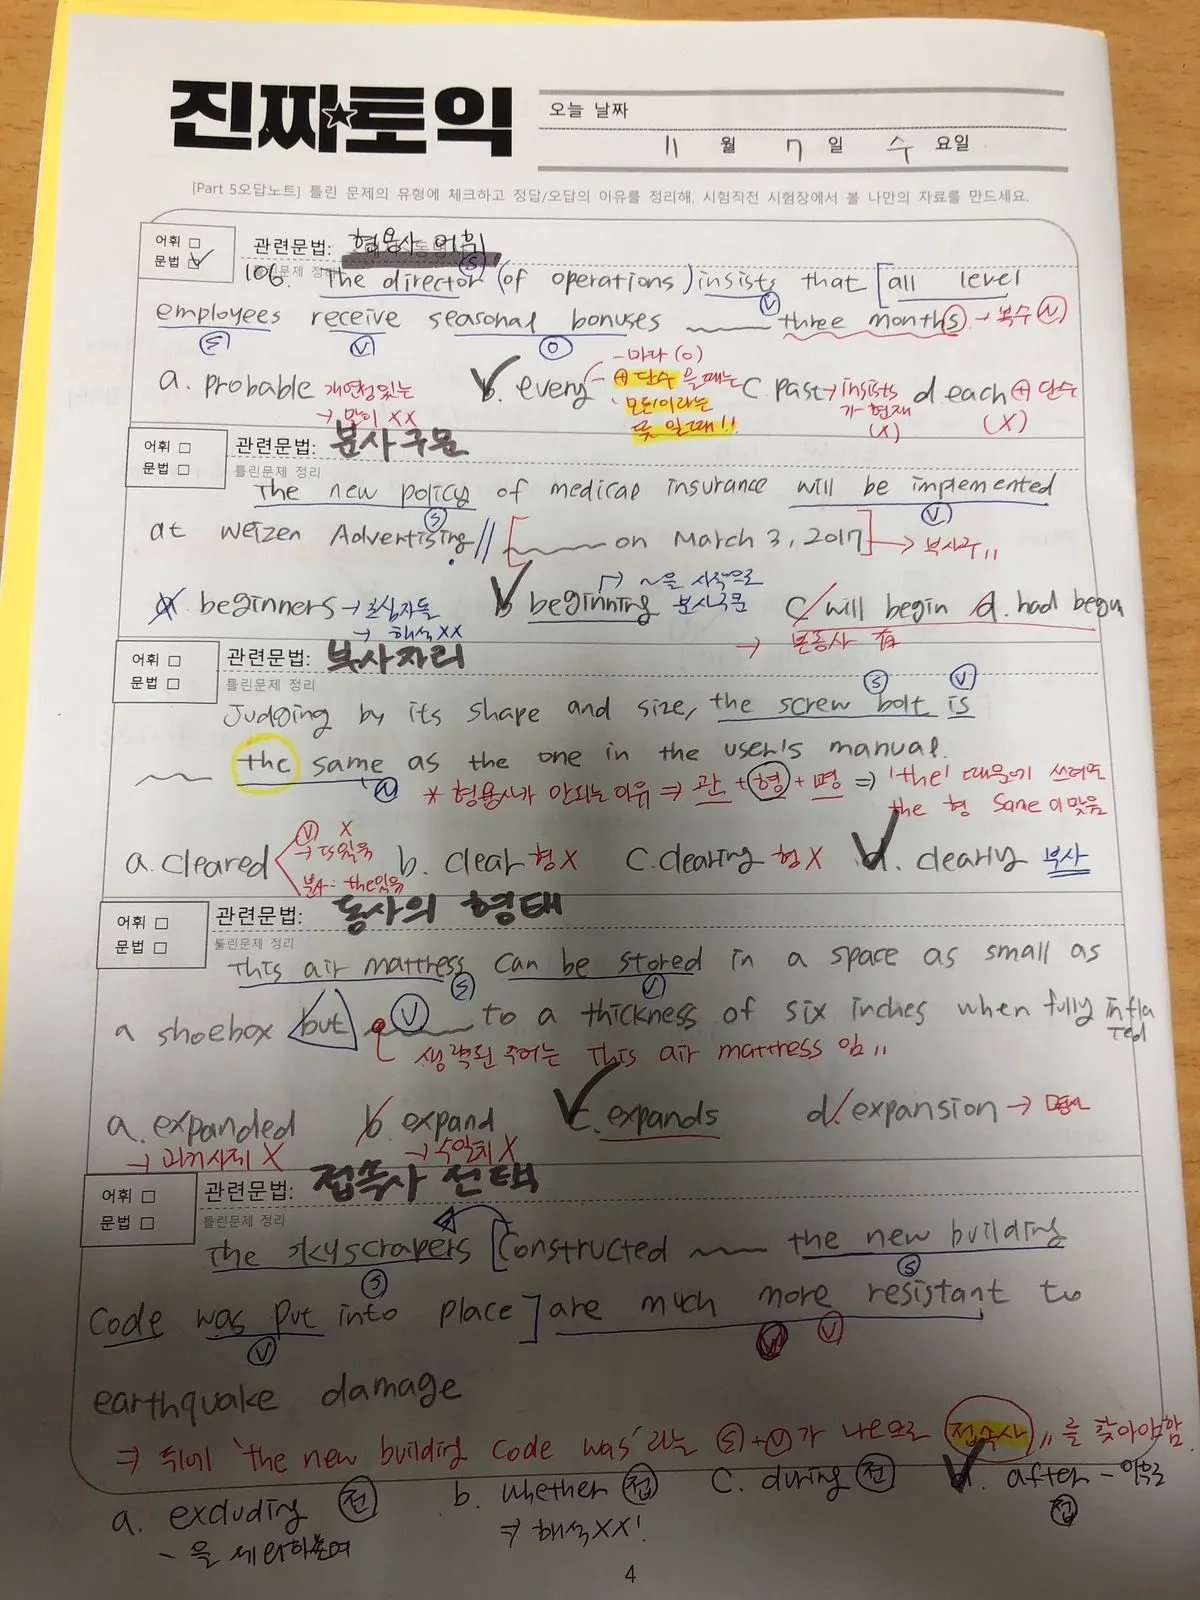 진짜토익
오늘 날짜
11 월 7 일 수 요일
[Part 5오답노트] 틀린 문제의 유형에 체크하고 정답/오답의 이유를 정리해, 시험직전 시험장에서 볼 나만의 자료를 만드세요.
어휘 □ 관련문법: 형용사 어휘
문법 □
106. The director (of operations) insists that [all level
employees receive seasonal bonuses three months → 복수 N
S V O
a. probable 개연성있는 b. every -마다 (O) C past → insists d. each ⊕ 단수
→ 말이 XX ⊕ 단수 을때는 가 현재 (X)
모든이라는 (X)
뜻일때!!
어휘 □ 관련문법: 분사구문
문법 □ 틀린문제 정리
The new policy of medical insurance will be implemented
S V
at Weizen Advertising, // [ on March 3, 2017] → 부사구
a beginners → 초심자들 b beginning ~을 시작으로 분사구문 C will begin d. had begun
→ 해석XX → 본동사
어휘 □ 관련문법: 부사자리
문법 □ 틀린문제 정리
S V
Judging by its shape and size, the screw bolt is
the same as the one in the user's manual.
N * 형용사가 안되는 이유 ⇒ 관 + 형 + 명 ⇒ 'the' 때문에 쓰려면
the 형 same 이 맞음
a. cleared V X b. clear 형 X C. clearing 형 X d. clearly 부사
the있음
어휘 □ 관련문법: 동사의 형태
문법 □ 틀린문제 정리
This air mattress can be stored in a space as small as
S V
a shoebox but V to a thickness of six inches when fully inflated
생략된 주어는 This air mattress 임
a. expanded b expand C. expands d. expansion → 명사
→ 과거시제 X → 수일치 X
어휘 □ 관련문법: 접속사 선택
문법 □ 틀린문제 정리
The skyscrapers [Constructed the new building
S S
Code was put into place] are much more resistant to
V V
earthquake damage
⇒ 뒤에 'the new building code was'라는 S+V가 나오므로 접속사 를 찾아야함.
a. excluding 전 b. whether 접 C. during 전 d. after - 이후로
~ 을 제외하여 ⇒ 해석XX! 접
4